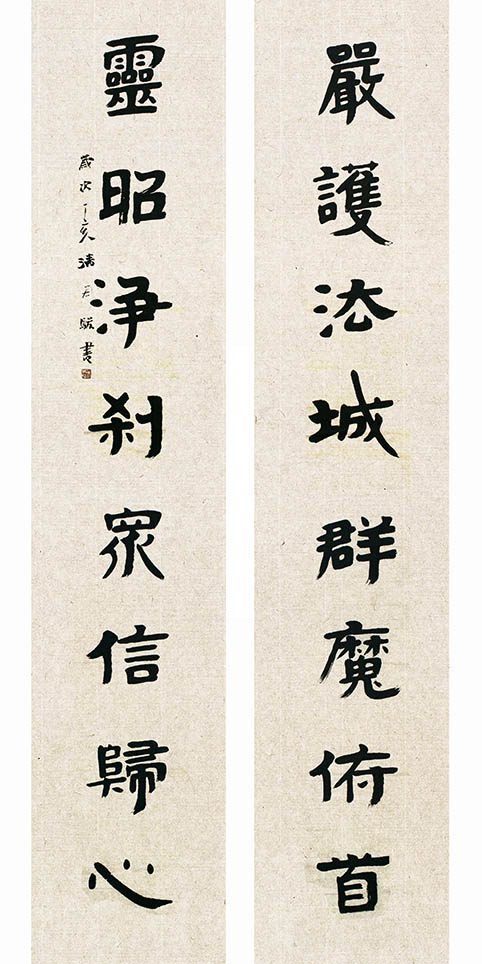 嚴護法城群魔俯首
靈昭淨刹眾信歸心
歲次丁亥清君駿書